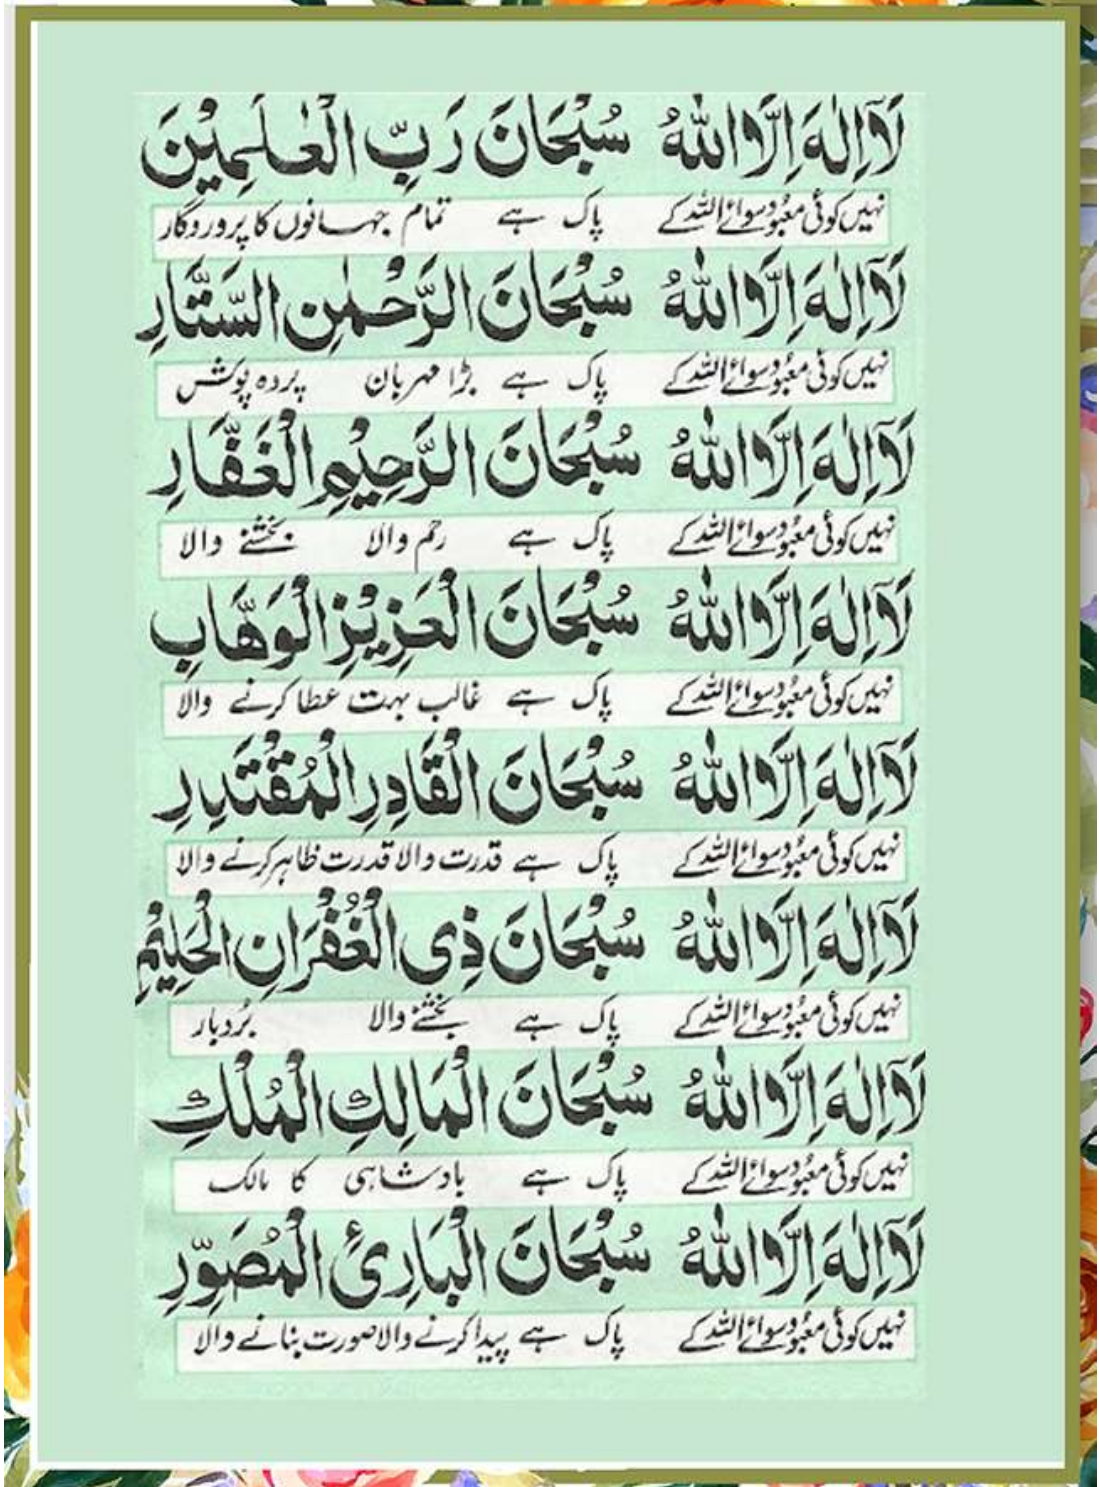 لَآ اِلٰهَ اِلَّا اللّٰهُ سُبْحَانَ رَبِّ الْعٰلَمِيْنَ
نہیں کوئی معبود سوائے اللہ کے پاک ہے تمام جہانوں کا پروردگار
لَآ اِلٰهَ اِلَّا اللّٰهُ سُبْحَانَ الرَّحْمٰنِ السَّتَّارِ
نہیں کوئی معبود سوائے اللہ کے پاک ہے بڑا مہربان پردہ پوش
لَآ اِلٰهَ اِلَّا اللّٰهُ سُبْحَانَ الرَّحِيْمِ الْغَفَّارِ
نہیں کوئی معبود سوائے اللہ کے پاک ہے رحم والا بخشنے والا
لَآ اِلٰهَ اِلَّا اللّٰهُ سُبْحَانَ الْعَزِيْزِ الْوَهَّابِ
نہیں کوئی معبود سوائے اللہ کے پاک ہے غالب بہت عطا کرنے والا
لَآ اِلٰهَ اِلَّا اللّٰهُ سُبْحَانَ الْقَادِرِ الْمُقْتَدِرِ
نہیں کوئی معبود سوائے اللہ کے پاک ہے قدرت والا قدرت ظاہر کرنے والا
لَآ اِلٰهَ اِلَّا اللّٰهُ سُبْحَانَ ذِى الْغُفْرَانِ الْحَلِيْمِ
نہیں کوئی معبود سوائے اللہ کے پاک ہے بخشنے والا بُردبار
لَآ اِلٰهَ اِلَّا اللّٰهُ سُبْحَانَ الْمَالِكِ الْمُلْكِ
نہیں کوئی معبود سوائے اللہ کے پاک ہے بادشاہی کا مالک
لَآ اِلٰهَ اِلَّا اللّٰهُ سُبْحَانَ الْبَارِئِ الْمُصَوِّرِ
نہیں کوئی معبود سوائے اللہ کے پاک ہے پیدا کرنے والا صورت بنانے والا